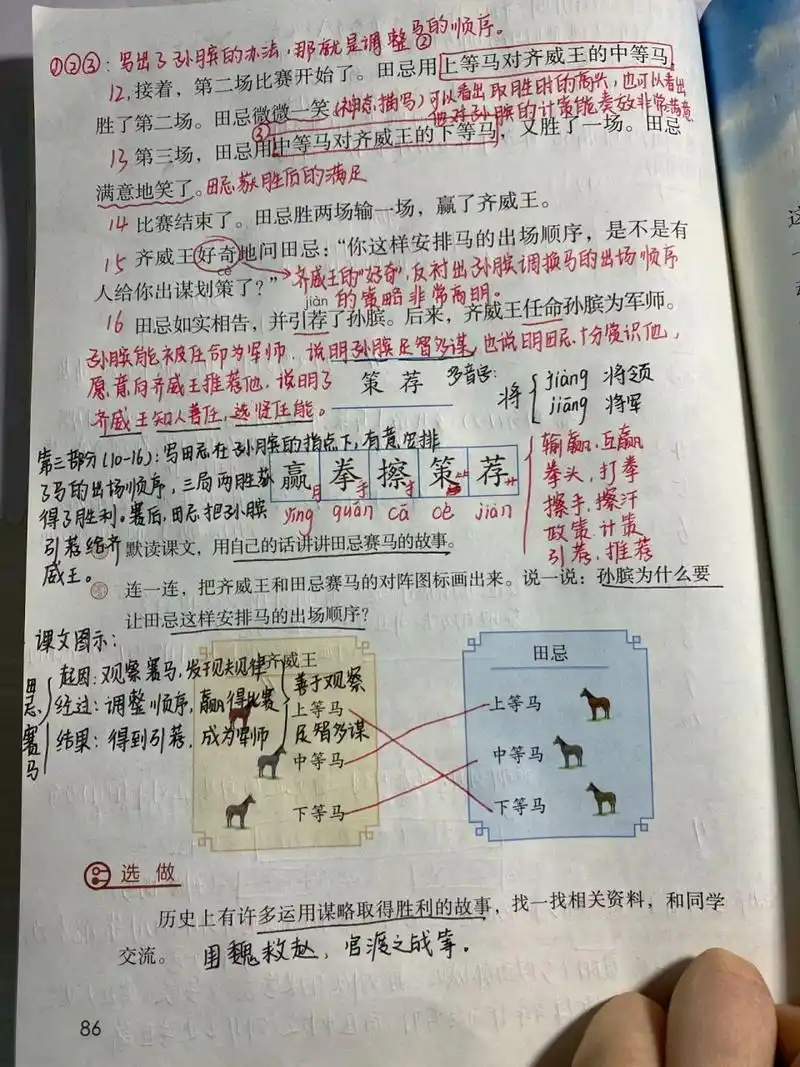 ①②③：写出了孙膑的办法，那就是调整马的顺序。
②
12，接着，第二场比赛开始了。田忌用上等马对齐威王的中等马，
胜了第二场。田忌微微一笑。(神态描写)可以看出取胜时的高兴，也可以看出
他对孙膑的计策能奏效非常满意
③
13 第三场，田忌用中等马对齐威王的下等马，又胜了一场。田忌
满意地笑了。田忌获胜后的满足
14 比赛结束了。田忌胜两场输一场，赢了齐威王。
15 齐威王好奇地问田忌：“你这样安排马的出场顺序，是不是有
cè
人给你出谋划策了？”齐威王的“好奇”，反衬出孙膑调换马的出场顺序
jiàn 的策略非常高明。
16 田忌如实相告，并引荐了孙膑。后来，齐威王任命孙膑为军师。
孙膑能被任命为军师，说明孙膑足智多谋，也说明田忌十分赏识他，
愿意向齐威王推荐他，说明了
齐威王知人善任，选贤任能。
策 荐
多音字：
将 jiàng 将领
jiāng 将军
第三部分(10-16)：写田忌在孙膑的指点下，有意安排
了马的出场顺序，三局两胜获
得了胜利。赛后，田忌把孙膑
引荐给齐
威王。
赢 拳 擦 策 荐
yíng quán cā cè jiàn
输赢、互赢
拳头，打拳
擦手，擦汗
政策、计策
引荐，推荐
默读课文，用自己的话讲讲田忌赛马的故事。
连一连，把齐威王和田忌赛马的对阵图标画出来。说一说：孙膑为什么要
让田忌这样安排马的出场顺序？
课文图示：
田忌赛马
起因：观察赛马，发现规律
经过：调整顺序，赢得比赛
结果：得到引荐，成为军师
善于观察
足智多谋
齐威王
上等马
中等马
下等马
田忌
上等马
中等马
下等马
选做
历史上有许多运用谋略取得胜利的故事，找一找相关资料，和同学
交流。 围魏救赵，官渡之战等。
86